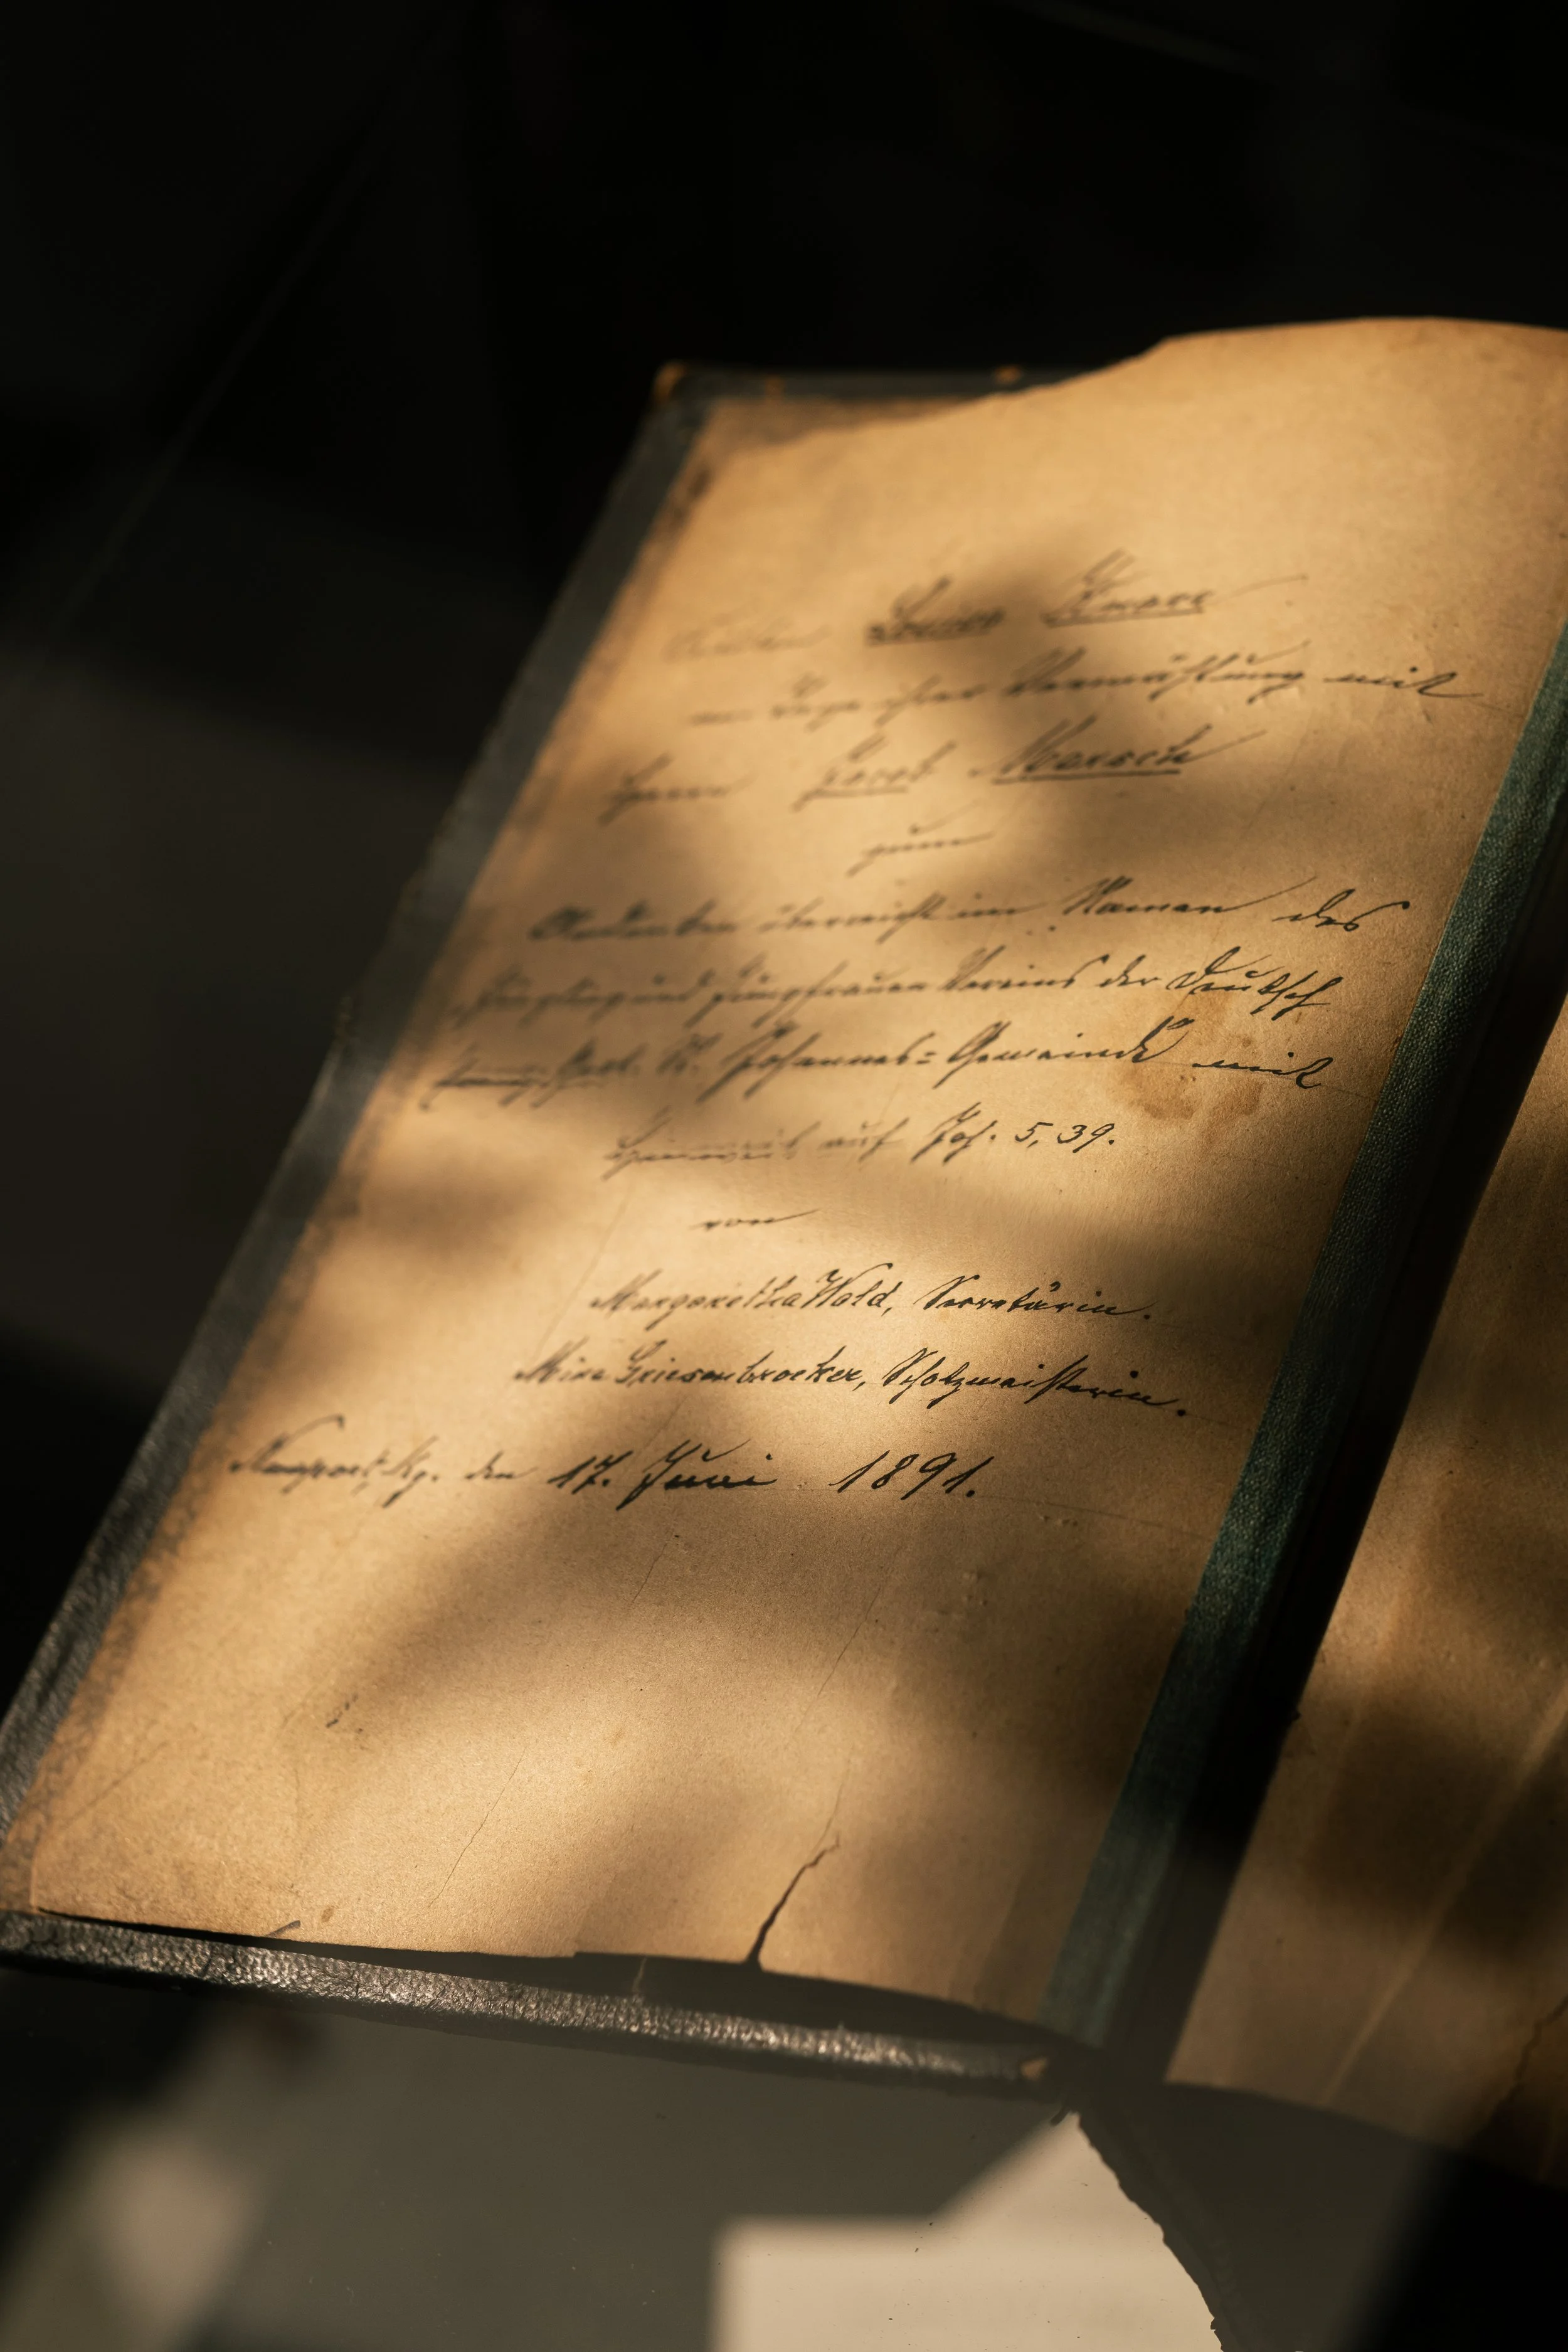 Louise
am Tage ihrer Vermählung mit
Herrn Jacob Marsch
zum
Andenken überreicht im Namen des
Jüngling und Jungfrauen Vereins der Deutsch
Evang. St. Johannes=Gemeinde mit
Hinweis auf Joh. 5,39.
von
Margaretha Wald, Secretärin.
Mina Griesenbrocker, Schatzmeisterin.
Newport, Ky. den 17. Juni 1891.